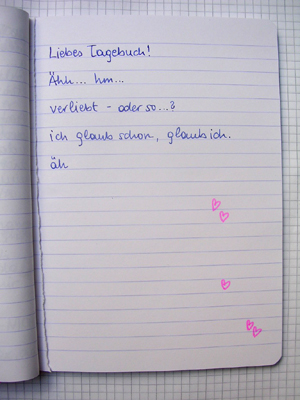 Liebes Tagebuch!
Ähh... hm...
verliebt - oder so...?
ich glaub schon, glaub ich.
äh